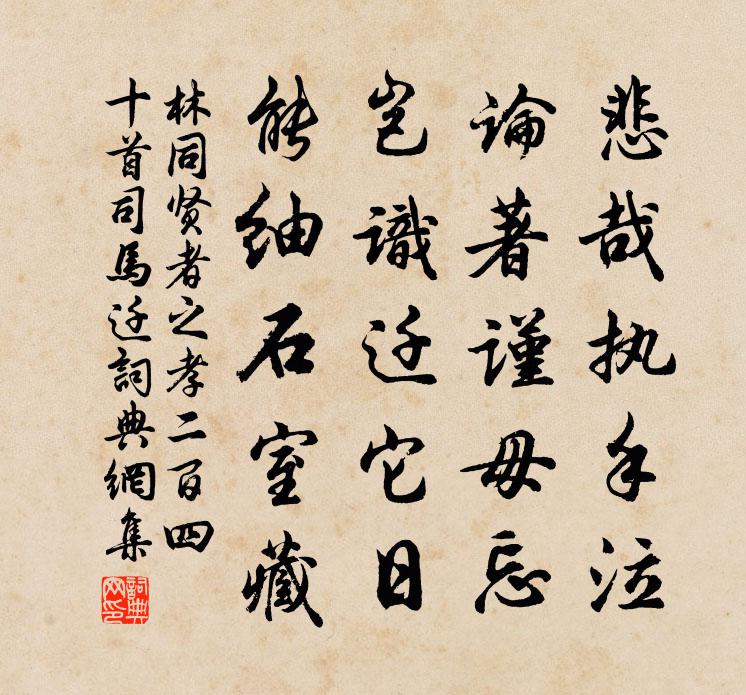 悲哉执手泣
論著谨毋忘
岂識迁它日
能紬石室藏
林同贤者之孝二百四
十首司馬迁詞典網集
詞典
网印